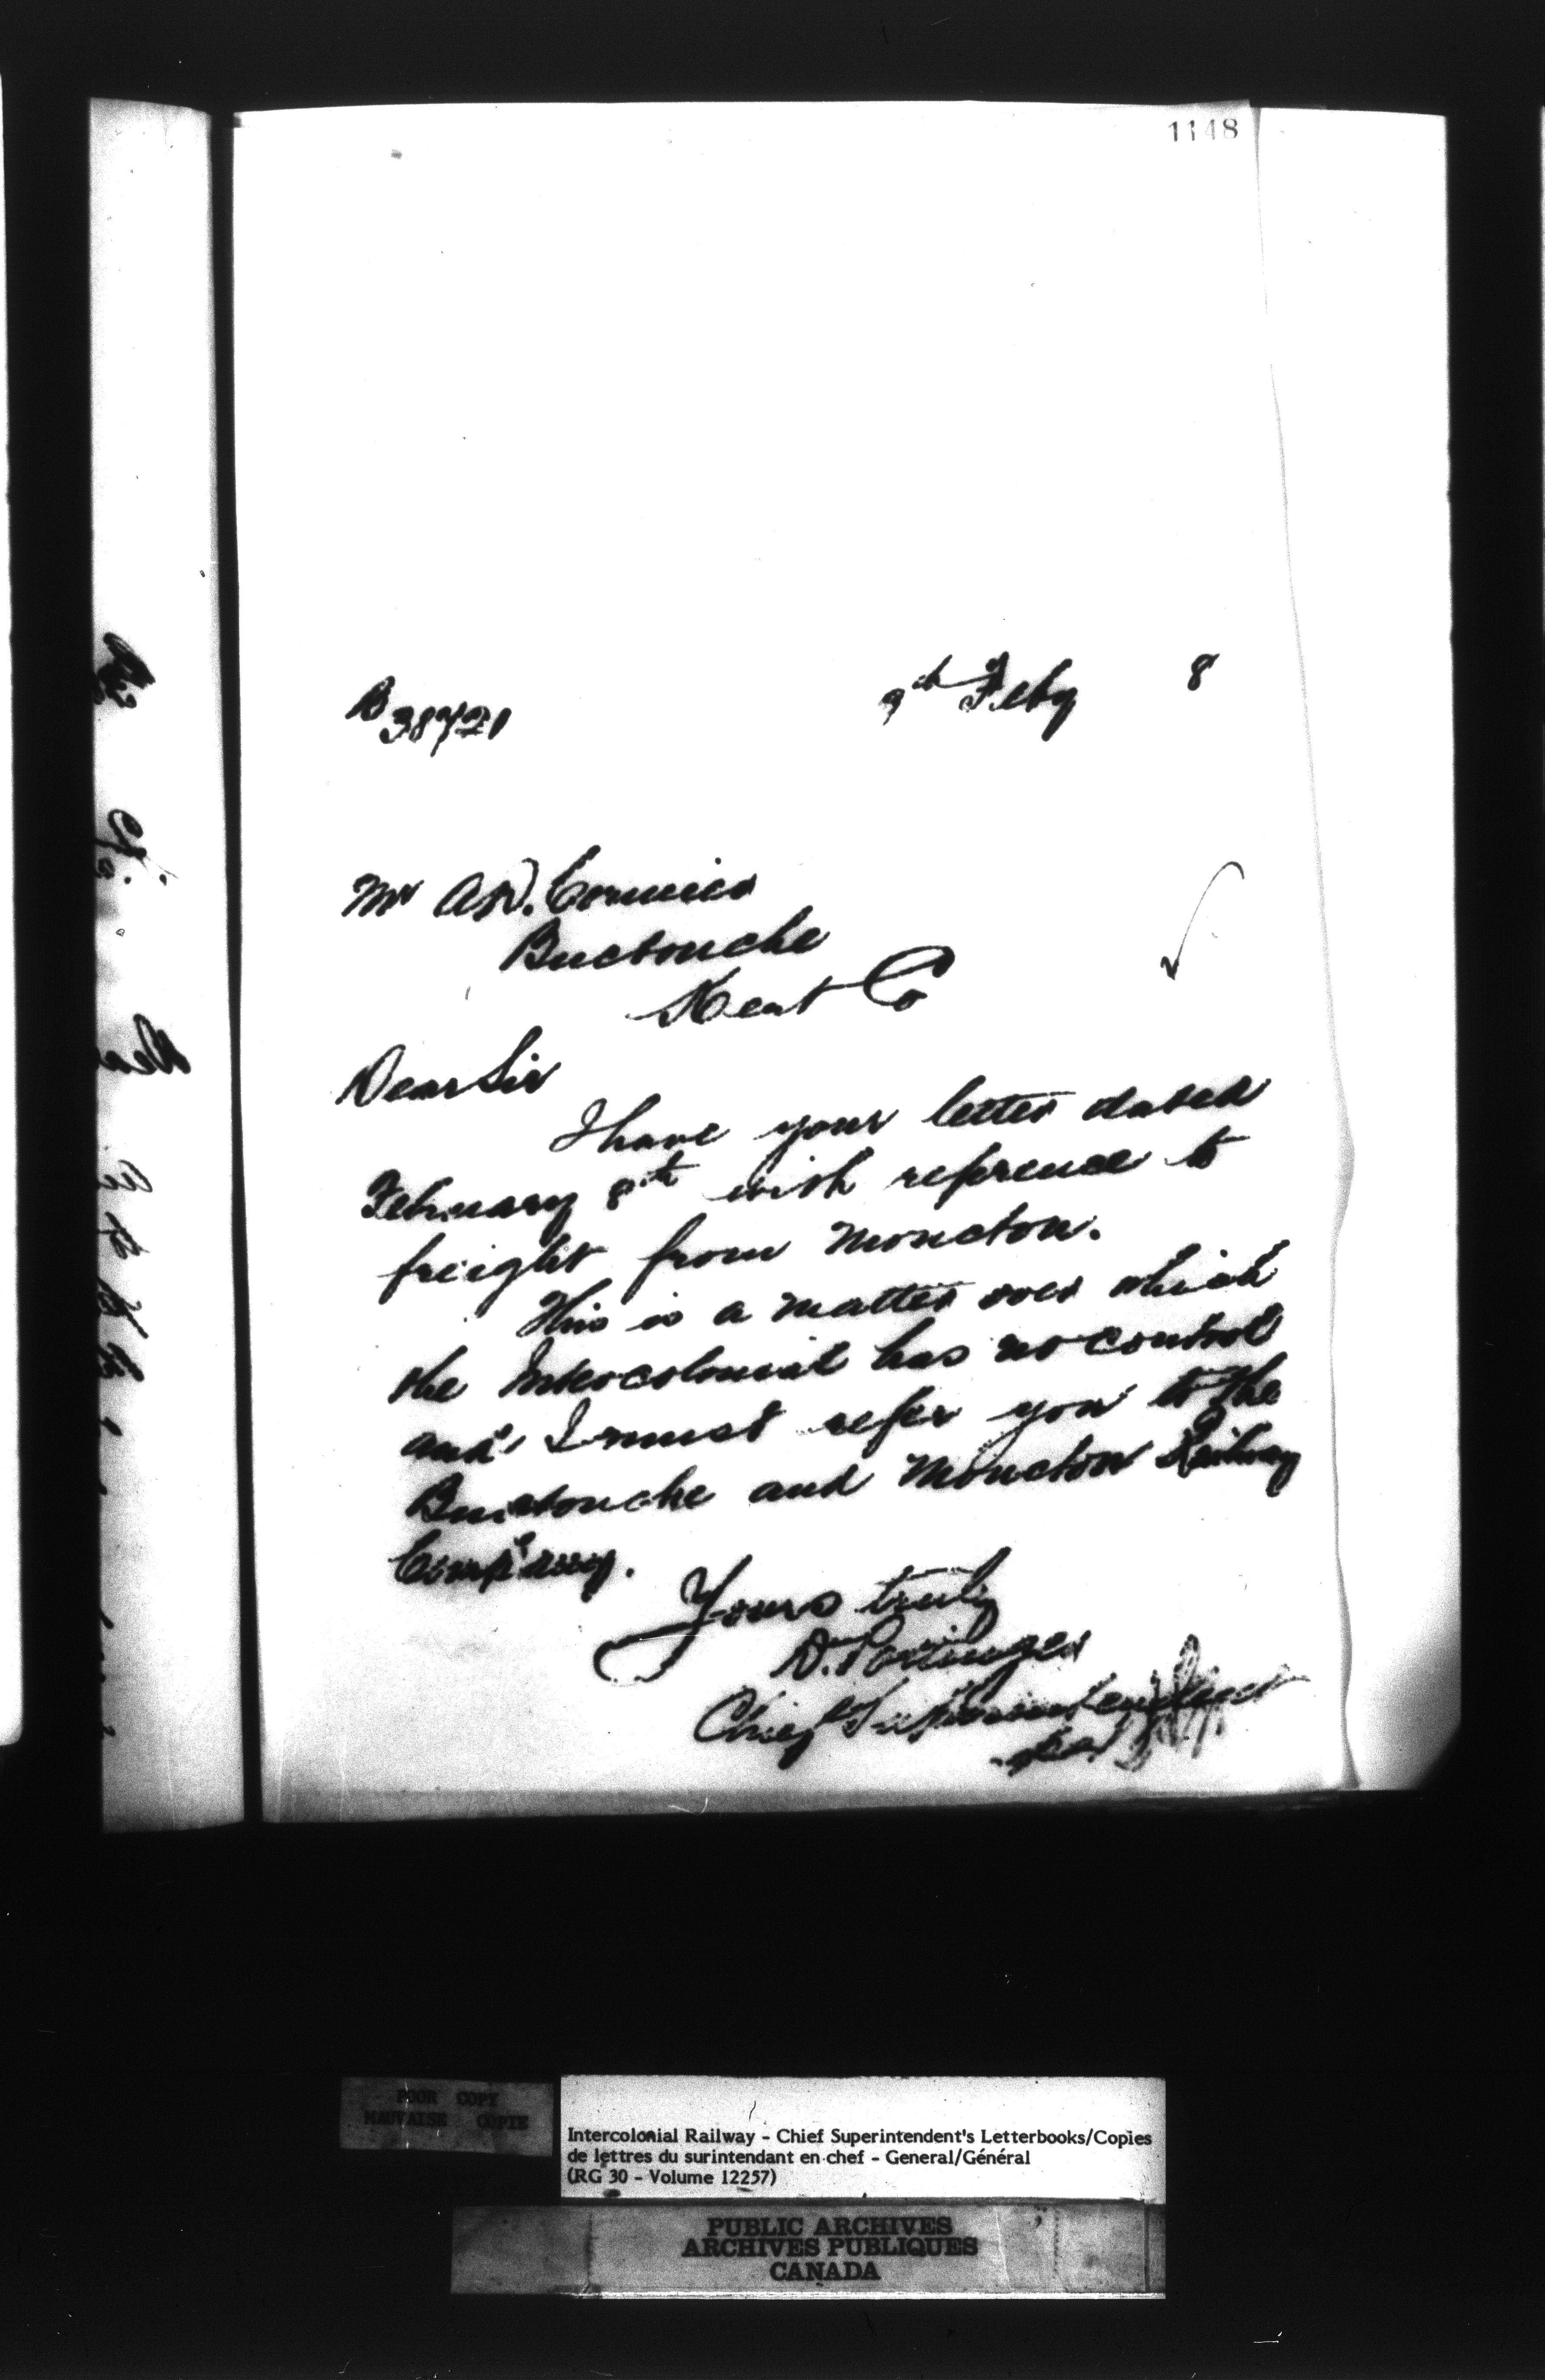 1148
B 38721
9th Feby 8
Mr A.D. Cormier
Buctouche
Kent Co
Dear Sir
I have your letter dated
February 8th with reference to
freight from Moncton.
This is a matter over which
the Intercolonial has no control
and I must refer you to the
Buctouche and Moncton Railway
Company.
Yours truly
D. Pottinger
Chief Superintendent
POOR COPY
MAUVAISE COPIE
Intercolonial Railway - Chief Superintendent's Letterbooks/Copies
de lettres du surintendant en chef - General/Général
(RG 30 - Volume 12257)
PUBLIC ARCHIVES
ARCHIVES PUBLIQUES
CANADA